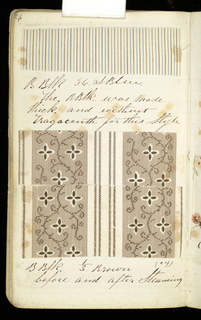 B Blk 34 at Blue
The B Blk was made
thick and without
Tragacanth for this Style
B Blk. Brown
before and after Steaming